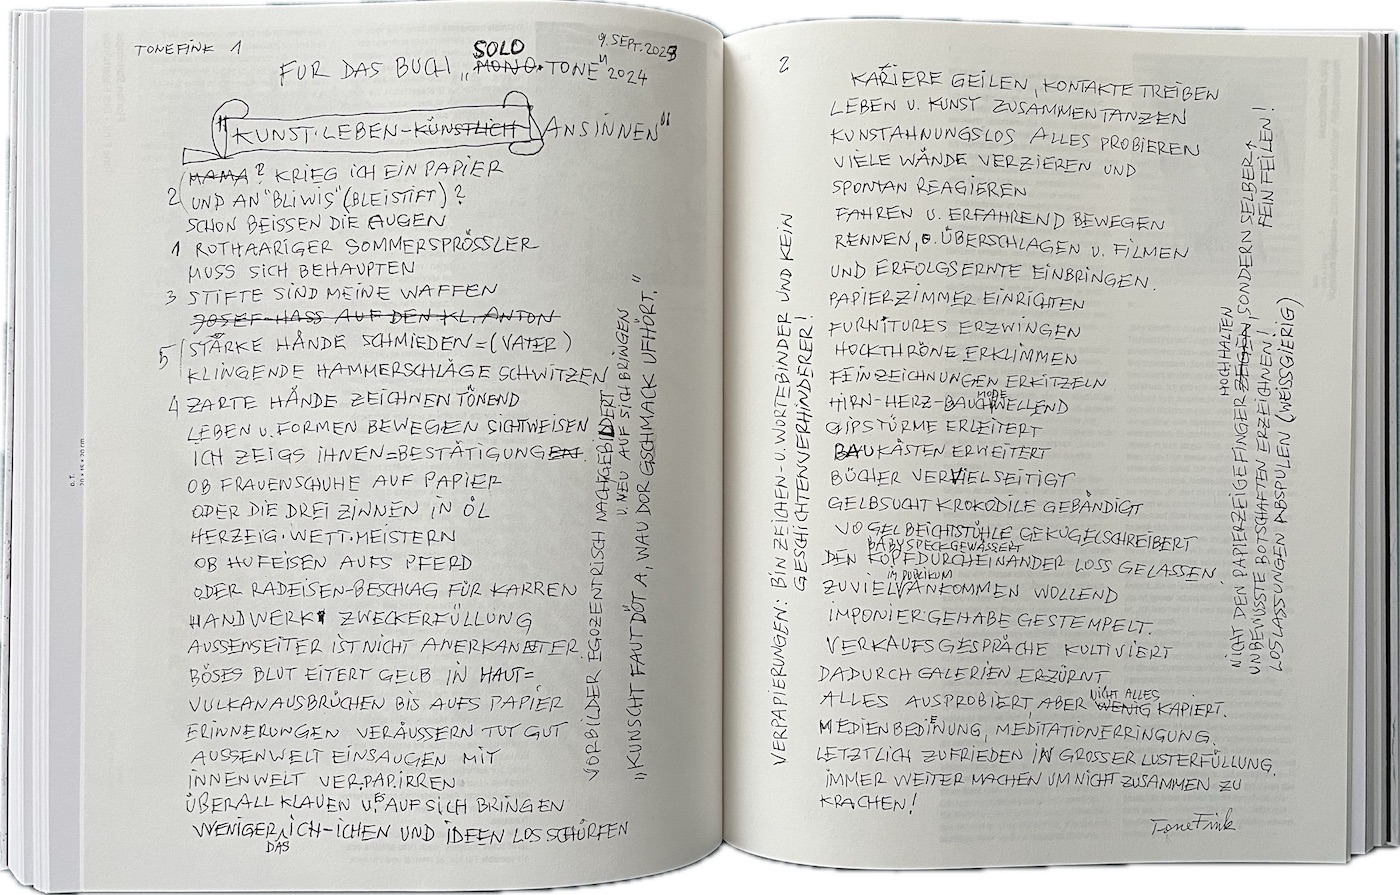 TONEFINK 1
9. SEPT. 2023
FÜR DAS BUCH „MONO. SOLO TONE" 2024
"KUNST·LEBEN-KÜNSTLICH ANSINNEN"
MAMA? KRIEG ICH EIN PAPIER
2 UND AN "BLIWIS" (BLEISTIFT)?
SCHON BEISSEN DIE AUGEN
1 ROTHAARIGER SOMMERSPRÖSSLER
MUSS SICH BEHAUPTEN
3 STIFTE SIND MEINE WAFFEN
JOSEF-HASS AUF DEN KL. ANTON
5 STÄRKE HÄNDE SCHMIEDEN=(VATER)
KLINGENDE HAMMERSCHLÄGE SCHWITZEN
4 ZARTE HÄNDE ZEICHNEN TÖNEND
LEBEN U. FORMEN BEWEGEN SICHTWEISEN
ICH ZEIGS IHNEN=BESTÄTIGUNGEN.
OB FRAUENSCHUHE AUF PAPIER
ODER DIE DREI ZINNEN IN ÖL
HERZEIG·WETT·MEISTERN
OB HUFEISEN AUFS PFERD
ODER RADEISEN-BESCHLAG FÜR KARREN
HANDWERK ZWECKERFÜLLUNG
AUSSENSEITER IST NICHT ANERKANNTER.
BÖSES BLUT EITERT GELB IN HAUT=
VULKANAUSBRÜCHEN BIS AUFS PAPIER
ERINNERUNGEN VERÄUSSERN TUT GUT
AUSSENWELT EINSAUGEN MIT
INNENWELT VERPAPIRREN
ÜBERALL KLAUEN U. AUF SICH BRINGEN
WENIGER DAS ICH-ICHEN UND IDEEN LOS SCHÜRFEN
VORBILDER EGOZENTRISCH NACHGEBILDERT
U. NEU AUF SICH BRINGEN
„KUNSCHT FAUT DÖT A, WAU DOR GSCHMACK UFHÖRT."
2
KARIERE GEILEN, KONTAKTE TREIBEN
LEBEN U. KUNST ZUSAMMENTANZEN
KUNSTAHNUNGSLOS ALLES PROBIEREN
VIELE WÄNDE VERZIEREN UND
SPONTAN REAGIEREN
FAHREN U. ERFAHREND BEWEGEN
RENNEN, ÜBERSCHLAGEN U. FILMEN
UND ERFOLGSERNTE EINBRINGEN.
PAPIERZIMMER EINRICHTEN
FURNITURES ERZWINGEN
HOCKTHRÖNE ERKLIMMEN
FEINZEICHNUNGEN ERKITZELN
HIRN-HERZ-BAUCH MODE WELLEND
GIPSTÜRME ERLEITERT
BAUKÄSTEN ERWEITERT
BÜCHER VERVIELSEITIGT
GELBSUCHT KROKODILE GEBÄNDIGT
VO GELBEICHTSTÜHLE GEKUGELSCHREIBERT
BABYSPECK GEWÄSSERT
DEN KOPFDURCHEINANDER LOSS GELASSEN.
ZUVIEL IM PUBLIKUM ANKOMMEN WOLLEND
IMPONIERGEHABE GESTEMPELT.
VERKAUFSGESPRÄCHE KULTIVIERT
DADURCH GALERIEN ERZÜRNT
ALLES AUSPROBIERT, ABER WENIG NICHT ALLES KAPIERT.
MEDIENBEDIENUNG, MEDITATIONERRINGUNG.
LETZTLICH ZUFRIEDEN IN GROSSER LUSTERFÜLLUNG.
IMMER WEITER MACHEN UM NICHT ZUSAMMEN ZU
KRACHEN!
ToneFink
VERPAPIERUNGEN: BIN ZEICHEN- U. WORTEBINDER UND KEIN
GESCHICHTENVERHINDERER!
NICHT DEN PAPIERZEIGEFINGER ZEIGEN, HOCHHALTEN SONDERN SELBER
FEIN FEILEN!
UNBEWUSSTE BOTSCHAFTEN ERZEICHNEN!
LOSLASSUNGEN ABSPULEN (WEISSGIERIG)